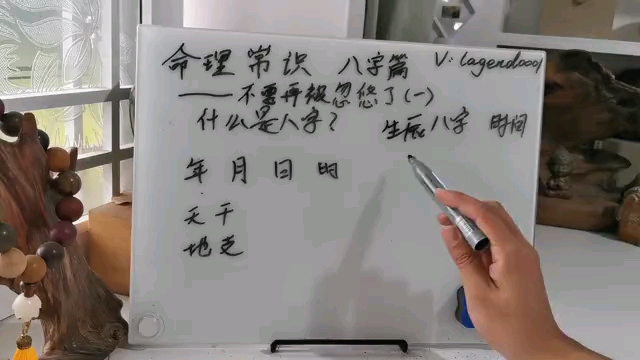 命理常识 八字篇 V:lagend0001
——不要再被忽悠了(一)
什么是八字? 生辰八字 时间
年 月 日 时
天干
地支